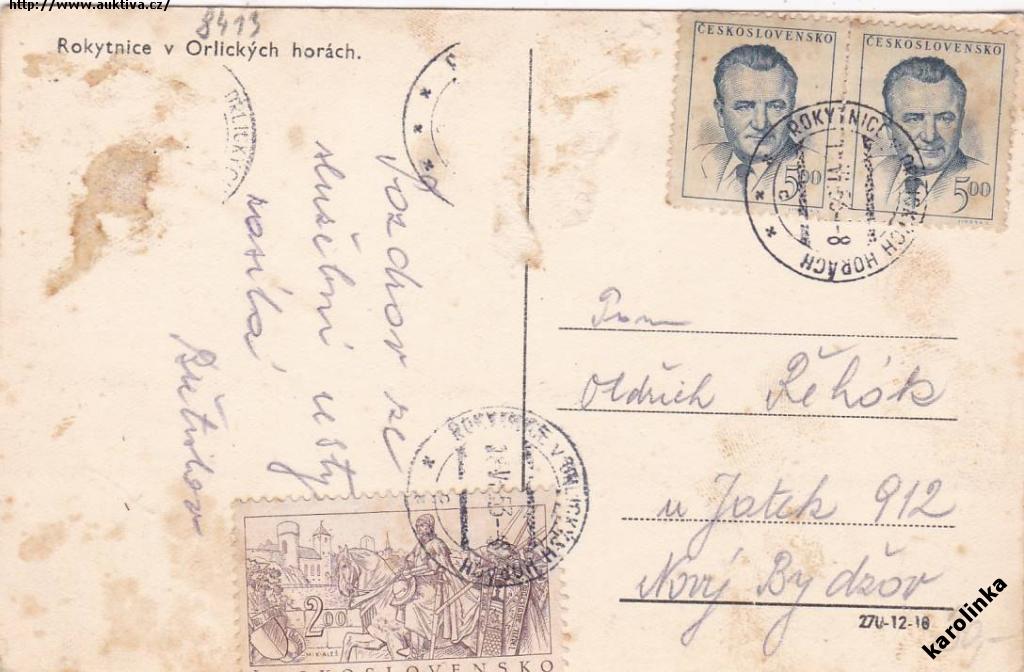 http://www.auktiva.cz/
8413
Rokytnice v Orlických horách.
Pozdrav ze
služební cesty
zasílá
ČESKOSLOVENSKO
5,00
ČESKOSLOVENSKO
5,00
ROKYTNICE V ORLICKÝCH HORÁCH
Pan
Oldřich Řehák
u Jatek 912
Nový Bydžov
270-12-18
ORLICKÝCH
ROKYTNICE V ORLICKÝCH HORÁCH
2,00
M.K.ALEŠ
ČESKOSLOVENSKO
karolinka